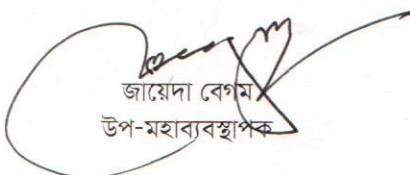 জায়েদা বেগম
উপ-মহাব্যবস্থাপক